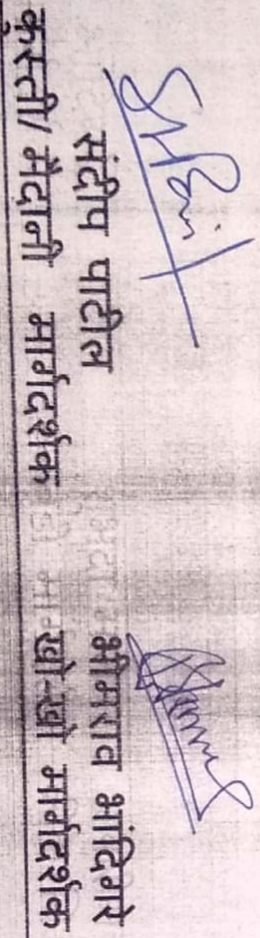 संदीप पाटील
कुस्ती/ मैदानी मार्गदर्शक
भीमराव भांदिगरे
खो-खो मार्गदर्शक